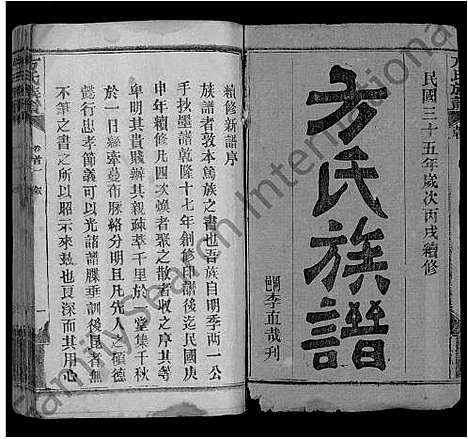 民國三十五年歲次丙戌續修
方氏族譜
嗣李血哉刊
方氏族譜
卷首一 序
一
續修新譜序
族譜者敦本篤族之書也吾族自明季兩一公
手抄墨譜乾隆十七年創修印譜後迄民國庚
申年續修凡四次煥者聚之散者收之序其等
卑明其貴賤辦其親疎萃千里於一堂集千秋
於一日縣縈蔓布脈絡分明且凡先人之碩德
懿行忠孝節義可以光諸譜牒垂訓後昆者無
不筆之書之所以昭示來兹也良深而其用心
FamilySearch International